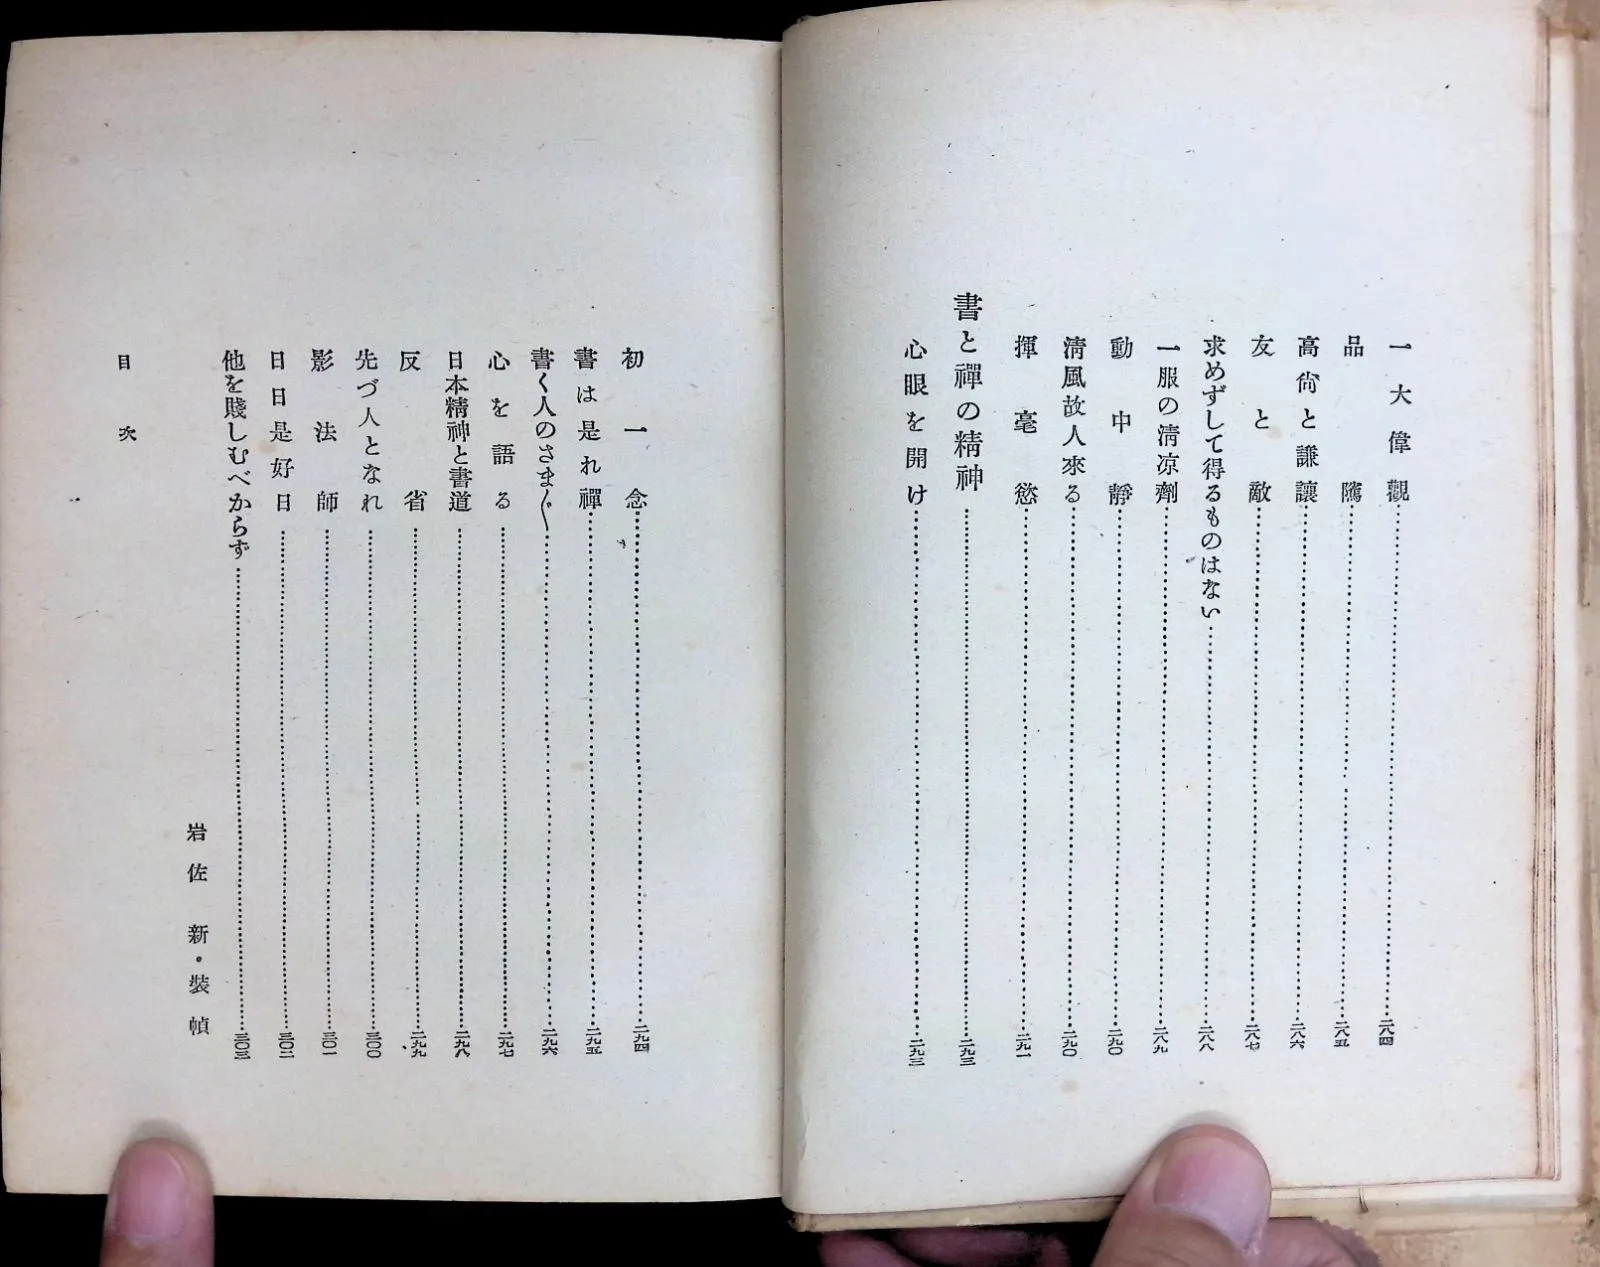 一大偉觀……二八四
品隲……二八五
高尙と謙讓……二八六
友と敵……二八七
求めずして得るものはない……二八八
一服の淸凉劑……二八九
動中靜……二九〇
淸風故人來る……二九〇
揮毫慾……二九一
書と禪の精神……二九三
心眼を開け……二九三
初一念……二九四
書は是れ禪……二九五
書く人のさま〴〵……二九六
心を語る……二九七
日本精神と書道……二九八
反省……二九九
先づ人となれ……三〇〇
影法師……三〇一
日日是好日……三〇二
他を賤しむべからず……三〇三
岩佐 新・裝幀
目次